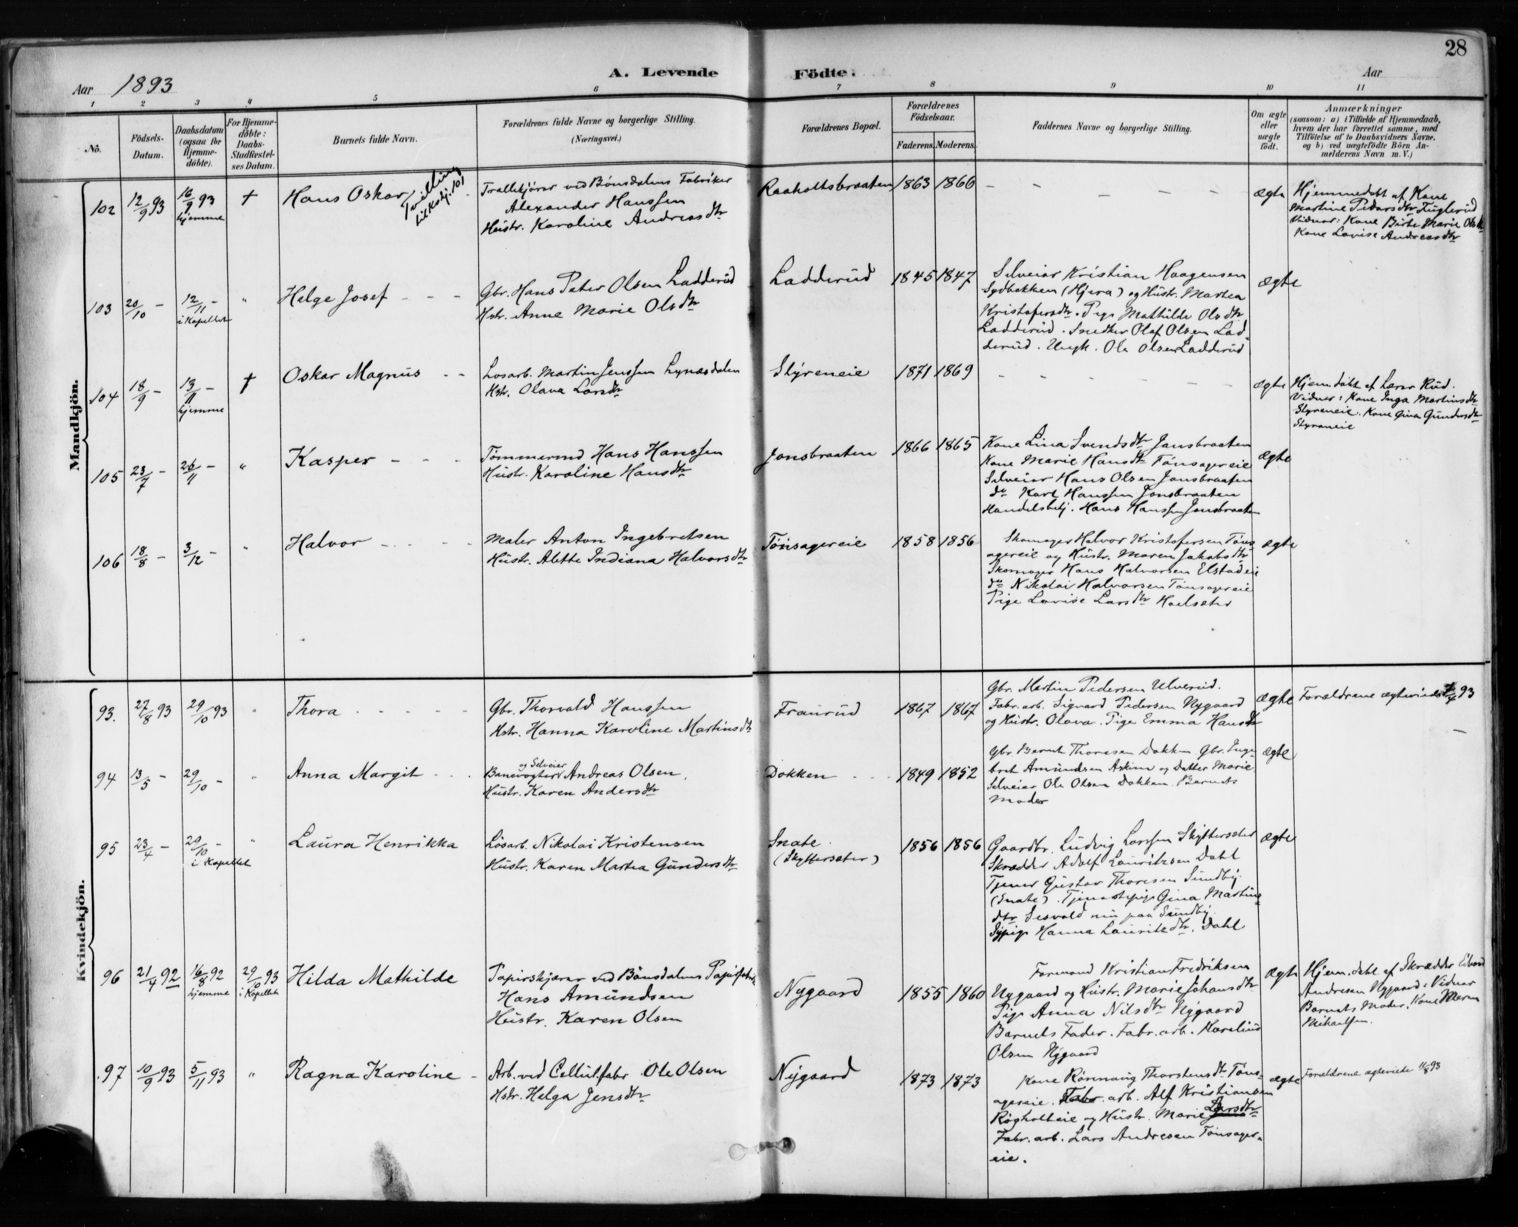 28
Aar 1893
A. Levende Födte.
Aar
1 2 3 4 5 6 7 8 9 10 11
No.
Födsels-
Datum.
Daabsdatum
(ogsaa for
Hjemme-
döbte).
For Hjemme-
döbte:
Daabs-
Stadfæstel-
ses Datum.
Barnets fulde Navn.
Forældrenes fulde Navne og borgerlige Stilling.
(Næringsvei.)
Forældrenes Bopæl.
Forældrenes
Födselsaar.
Faderens. Moderens.
Faddernes Navne og borgerlige Stilling.
Om ægte
eller
uægte
födt.
Anmærkninger
(saasom: a) i Tilfælde af Hjemmedaab,
hvem der har forrettet samme, med
Tilföielse af to Daabsvidners Navne,
og b) ved uægtefödte Börn An-
melderens Navn m. V.)
Mandkjön.
102 12/9 93 16/9 93 hjemme † Hans Oskar
Tvilling
til Kvkj. 101
Trallekjører ved Bönsdalens Fabriker
Alexander Hanssen
Hustr. Karoline Andreasdtr
Raaholtsbraaten 1863 1866 ægte
Hjemmedøbt af Kone
Martine Pedersdtr Fuglerud
Vidner: Kone Birte Marie Olsdtr
Kone Lovise Andreasdtr
103 20/10 – 12/11 – i Kapellet " Helge Josef
Gbr. Hans Peter Olsen Ladderud
Hstr. Anne Marie Olsdtr
Ladderud 1845 1847
Selveier Kristian Haagensen
Sydbakken (Hjera) og Hustr. Martea
Kristofersdtr. Pige Mathilde Olsdtr
Ladderud. Snedker Olaf Olsen Lad-
derud. Ungk. Ole Olsen Ladderud
ægte
104 18/9 – 13/11 – hjemme † Oskar Magnus
Løsarb. Martin Jenssen Lynæsdalen
Hstr. Olava Larsdtr
Styreneie 1871 1869 ægte
Hjemdøbt af Lærer Rud.
Vidner: Kone Inga Martinsdtr
Styreneie. Kone Gina Gundersdtr
Styreneie
105 23/7 – 26/11 – " Kasper
Tømmermd Hans Hanssen
Hustr. Karoline Hansdtr
Jonsbraaten 1866 1865
Kone Lina Svendsdtr Jonsbraaten
Kone Marie Hansdtr Tönsagereie
Selveier Hans Olsen Jonsbraaten
do Karl Hanssen Jonsbraaten
Handelsbetj. Hans Hanssen Jonsbraaten
ægte
106 18/8 – 3/12 – " Halvor
Maler Anton Ingebretsen
Hustr. Alette Indiana Halvorsdtr
Tönsagereie 1858 1856
Skomager Halvor Kristofersen Töns-
agereie og Hustr. Maren Jakobsdtr
Skomager Hans Halvorsen Elstadeie
do Nikolai Halvorsen Tönsagereie
Pige Lovise Larsdtr Holsæter
ægte
Kvindekjön.
93. 27/8 93 29/10 93 " Thora
Gbr. Thorvald Hanssen
Hstr. Hanna Karoline Martinsdtr
Fraurud 1867 1867
Gbr. Martin Pedersen Ulverud.
Fabr. arb. Sigvard Pedersen Nygaard
og Hustr. Olava. Pige Emma Hansdtr
ægte Forældrene ægteviede 93
94 13/5 – 29/10 – " Anna Margit
og Selveier
Banevogter Andreas Olsen.
Hustr. Karen Andersdtr
Dokken 1849 1852
Gbr. Bernt Thoresen Dokken Gbr. Inge-
bret Amundsen Askim og Datter Marie
Selveier Ole Olsen Dokken. Barnets
Moder
ægte
95 23/4 – 29/10 – i Kapellet " Laura Henrikka
Løsarb. Nikolai Kristensen
Hustr. Karen Martea Gundersdtr
Snate.
(Skytterseter)
1856 1856
Gaardbr. Ludvig Larssen Skytterseter
Skrædder Adolf Lauritzsen Dahl
Tjener Gustav Thoresen Sundby
(Snate). Tjenestepige Gina Martins-
dtr Sesvold nu paa Sundby.
Sypige Hanna Lauritsdtr. Dahl
ægte
96 21/4 92 16/8 92 hjemme 29/10 93 i Kapellet Hilda Mathilde
Papirskjærer ved Bönsdalens Papirfabr.
Hans Amundsen
Hustr. Karen Olsen
Nygaard 1855 1860
Formand Kristian Fredriksen
Nygaard og Hustr. Marie Johansdtr
Pige Anna Nilsdtr Nygaard
Barnets Fader. Fabr. arb. Karelius
Olsen Nygaard
ægte
Hjem.døbt af Skrædder Edvard
Andresen Nygaard: Vidner
Barnets Moder. Kone Maren
Mikaelsen.
97 10/9 93 5/11 93 " Ragna Karoline
Arb. ved Cellulfabr Ole Olsen
Hstr. Helga Jensdtr
Nygaard 1873 1873
Kone Rönnaug Thorstensdtr Töns-
agereie. Fabr. arb. Alf Kristiansen
Rögholteie og Hustr. Marie Larsdtr
Fabr. arb. Lars Andresen Tönsager-
eie.
ægte Forældrene ægteviede 93